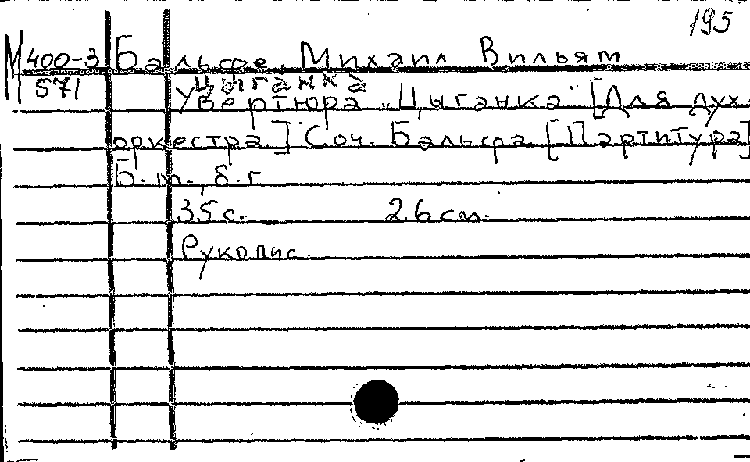 195
М 400-3 Бальфе, Михаил Вильям
571 Цыганка
Увертюра „Цыганка" [Для дух.
оркестра.] Соч. Бальфа [Партитура]
Б. м., б. г.
35 с. 26 см.
Рукопис